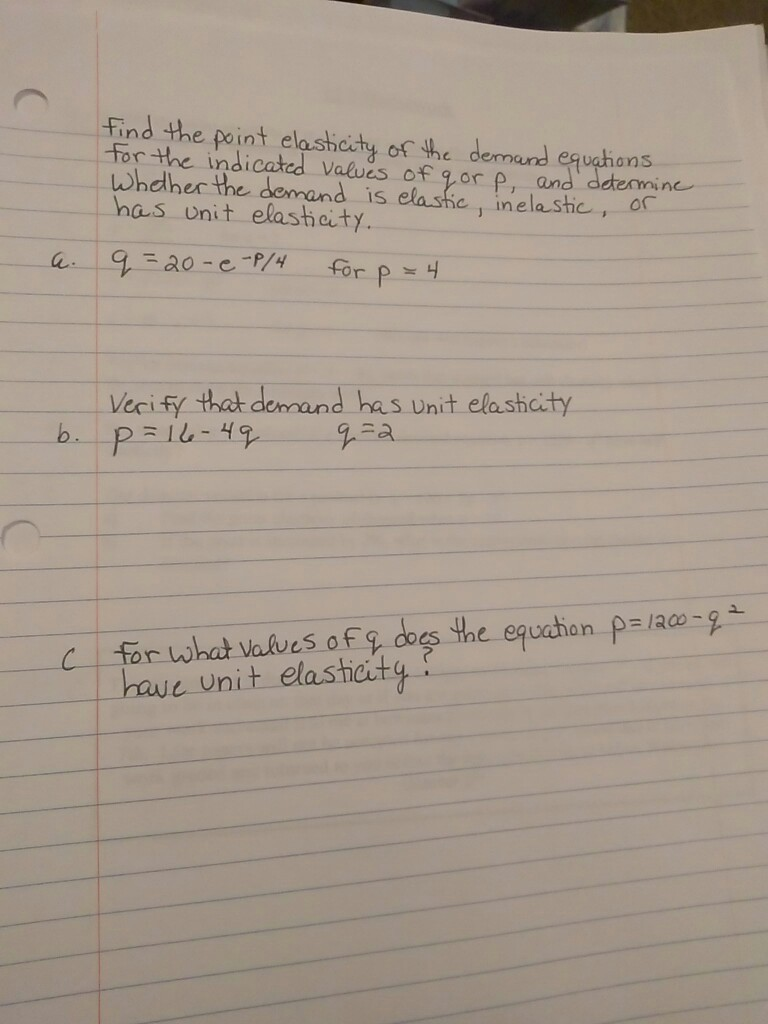 find the point elasticity of the demand equations
for the indicated values of q or p, and determine
whether the demand is elastic, inelastic, or
has unit elasticity.
a. q = 20 - e^-P/4 for p = 4
Verify that demand has unit elasticity
b. p = 16 - 4q q = 2
c for what values of q does the equation p = 1200 - q²
have unit elasticity?